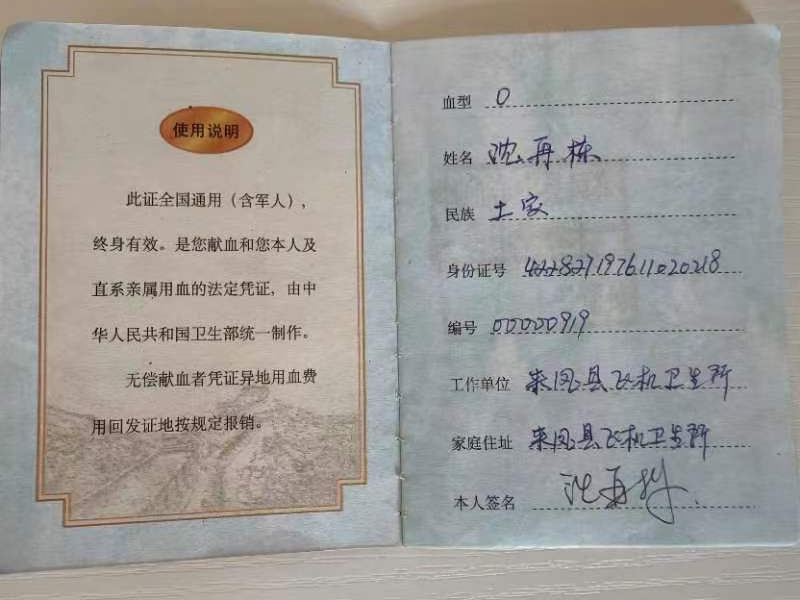 使用说明
此证全国通用（含军人），
终身有效。是您献血和您本人及
直系亲属用血的法定凭证，由中
华人民共和国卫生部统一制作。
无偿献血者凭证异地用血费
用回发证地按规定报销。
血型 O
姓名 沈再栋
民族 土家
身份证号 422827197611020218
编号 00000919
工作单位 来凤县飞机卫生所
家庭住址 来凤县飞机卫生所
本人签名 沈再栋